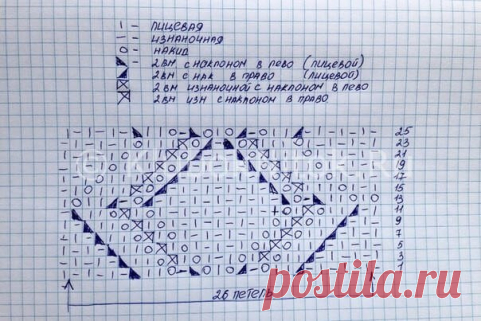 I - ЛИЦЕВАЯ
— - ИЗНАНОЧНАЯ
O - НАКИД
- 2ВМ С НАКЛОНОМ В ЛЕВО (ЛИЦЕВОЙ)
2ВМ С НАК В ПРАВО (ЛИЦЕВОЙ)
2ВМ ИЗНАНОЧНОЙ С НАКЛОНОМ В ЛЕВО
2ВМ ИЗН С НАКЛОНОМ В ПРАВО
25
23
21
19
17
15
13
11
9
7
5
3
1
26 ПЕТЕЛЬ
postila.ru